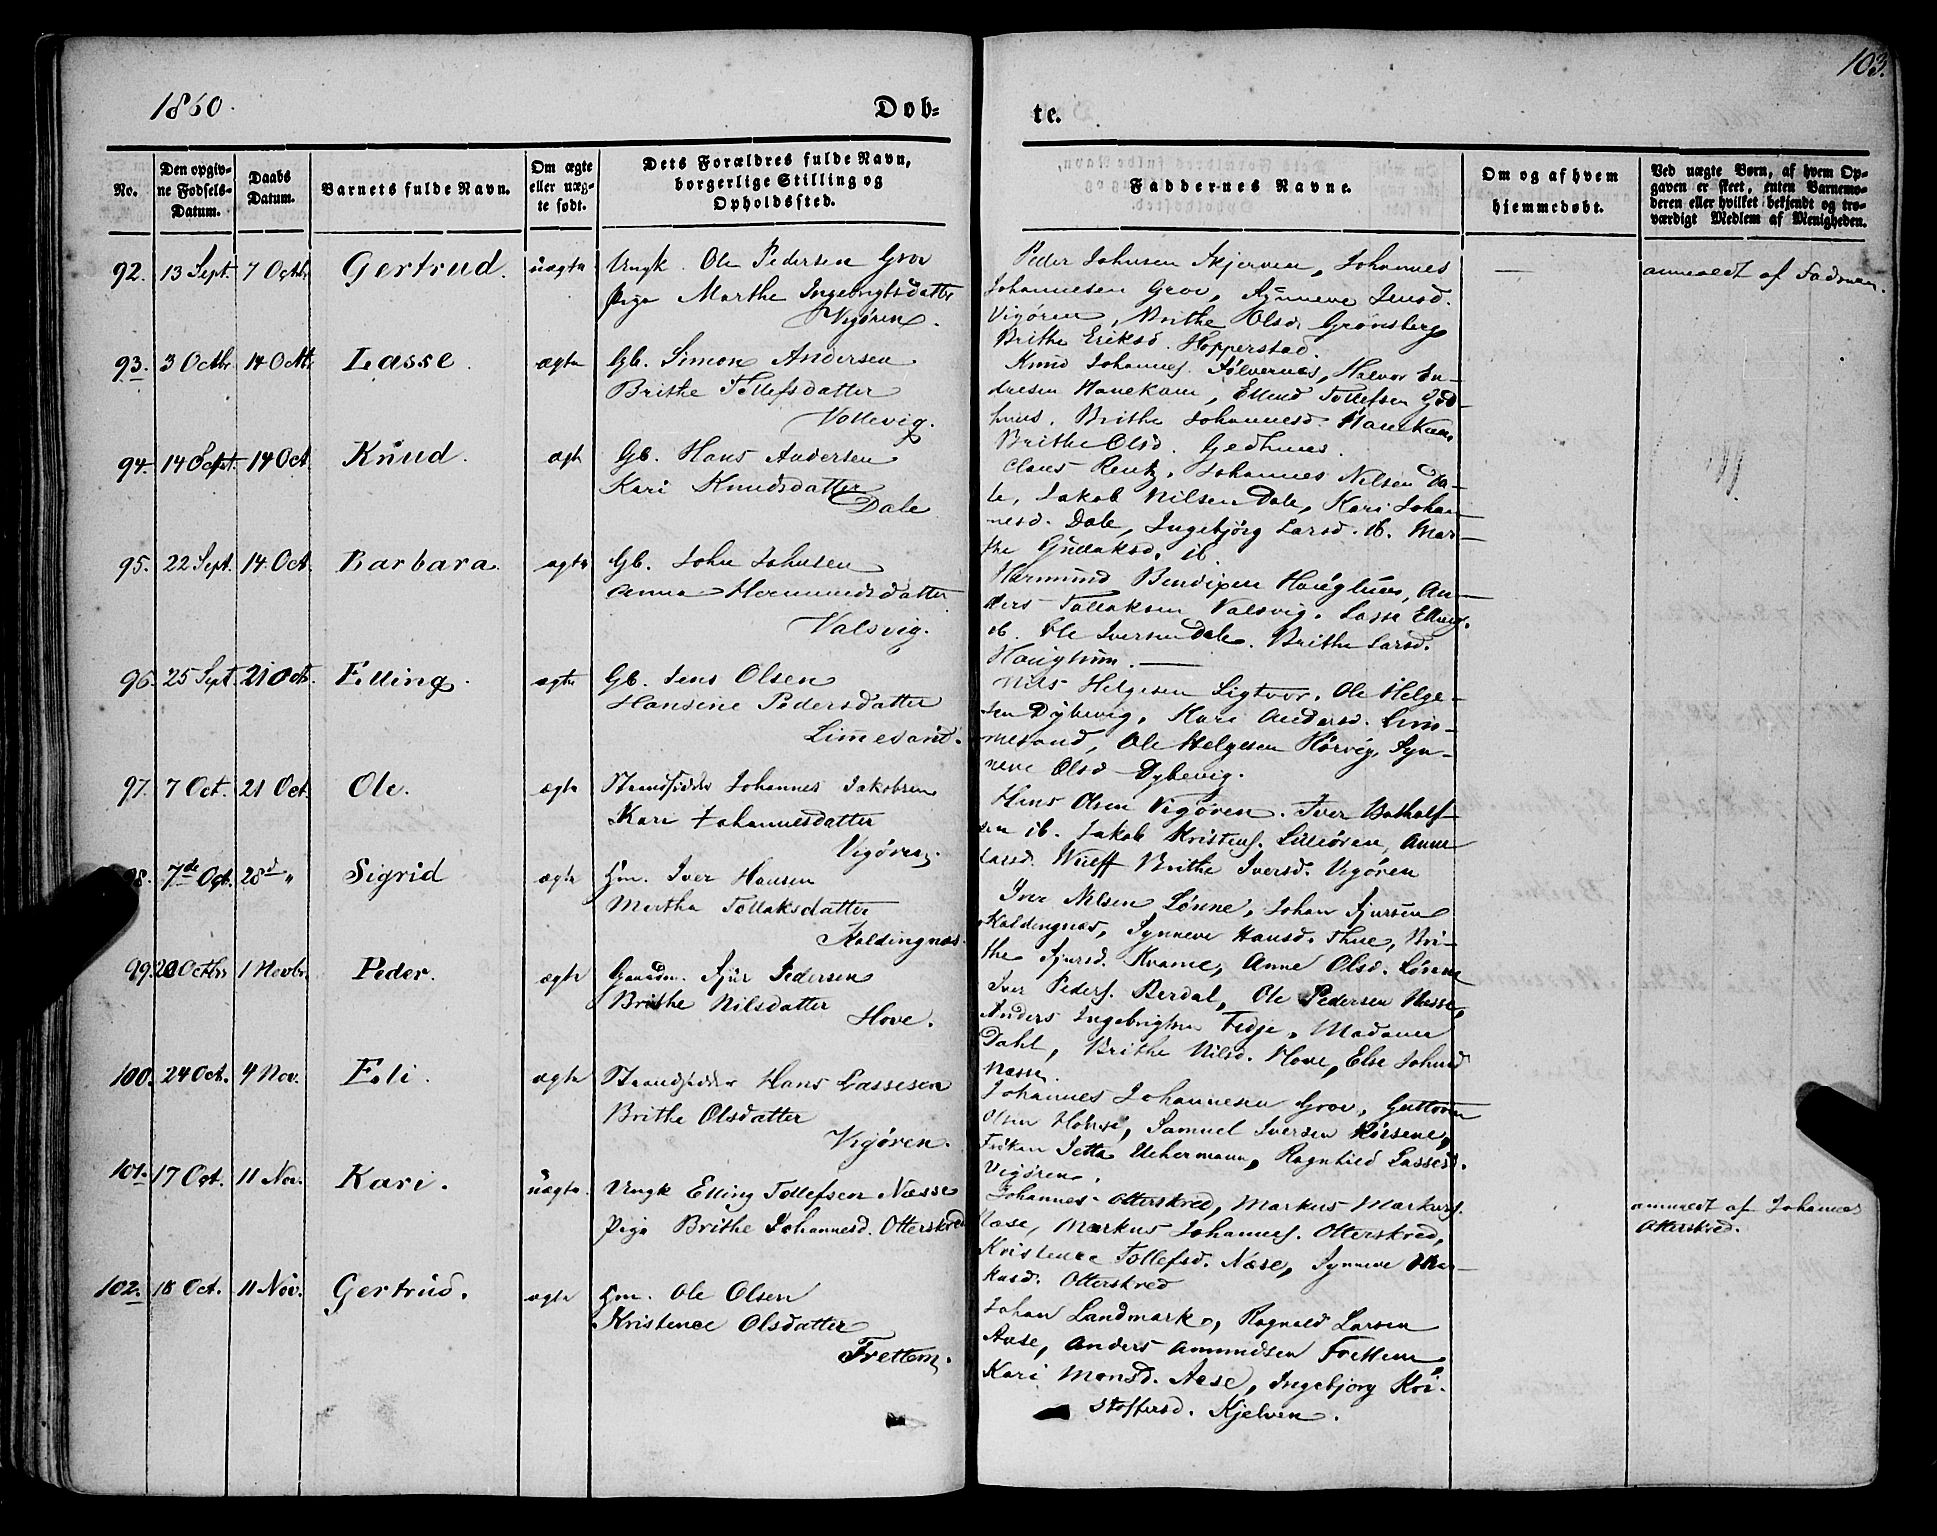 103.
1860.
Døb-
te.
No.
Den opgiv-
ne Fødsels-
Datum.
Daabs
Datum.
Barnets fulde Navn.
Om ægte
eller uæg-
te født.
Dets Forældres fulde Navn,
borgerlige Stilling og
Opholdssted.
Faddernes Navne.
Om og af hvem
hjemmedøbt.
Ved uægte Børn, af hvem Op-
gaven er skeet, enten Barnemo-
deren eller hvilket bekjendt og tro-
værdigt Medlem af Menigheden.
92. 13 Sept. 7 Octbr Gertrud. uægte Ungk. Ole Pedersen Grov
Pige Marthe Ingebrigtsdatter
Vigøren.
Peder Johnsen Skjerven, Johannes
Johannesen Grov, Synneve Jensd.
Vigøren, Brithe Olsd. Grønsberg
Brithe Eriksd. Hopperstad.
—
anmeldt af Faderen.
93. 3 Octbr. 14 Octbr Lasse. ægte Gb. Simon Andersen
Brithe Tollefsdatter
Vollevig.
Knud Johannes. Sølvernes, Halvor En-
dresen Hanekam, Ellend Tollefsen Gjed-
huus, Brithe Johannesd. Hanekam,
Brithe Olsd. Gjedhuus.
94. 14 Sept. 14 Oct. Knud. ægte Gb. Hans Andersen
Kari Knudsdatter
Dale
Claus Rentz, Johannes Nilsen Da-
le, Jakob Nilsen Dale, Kari Johan-
nesd. Dale, Ingebjørg Larsd. ib. Mar-
the Gullaksd. ib
95. 22 Sept. 14 Oct. Barbara. ægte Gb. John Johnsen
Anna Hermundsdatter
Valsvig.
Hermund Bendixen Hauglum, An-
ders Tollaksen Valsvig, Lasse Ellings.
ib. Ole Iversen Dale. Brithe Larsd.
Hauglum. —
96. 25 Sept. 21 Oct. Elling. ægte Gb. Jens Olsen
Hansine Pedersdatter
Limesand.
Nils Helgesen Ligtvor, Ole Helge-
sen Dybevig, Kari Andersd. Lim-
mesand, Ole Helgesen Hørvig, Syn-
neve Olsd Dybevig.
97. 7 Oct. 21 Oct. Ole. ægte Strandsidder Johannes Jakobsen
Kari Johannesdatter
Vigøren.
Hans Olsen Vigøren. Iver Botholf-
sen ib. Jakob Kristens. Lilleøren, Anne
Larsd. Wulff Brithe Iversd. Vigøren
98. 7de Oct. 28d " Sigrid ægte Hm. Iver Hansen
Martha Tollaksdatter
Holdingnæs.
Iver Nilsen Lønne, Johan Sjursen
Holdingnæs, Synneve Hansd. Thue, Bri-
the Sjursd. Kvame, Anne Olsd. Lønne
99. 20 Octbr 1 Novbr. Peder. ægte Gaardm. Sjur Pedersen
Brithe Nilsdatter
Hove.
Iver Peders. Berdal, Ole Pedersen Næsse,
Anders Ingebrigtsen Fedje, Madame
Dahl, Brithe Nilsd. Hove, Else Johnsd
Næsse.
100. 24 Oct. 4 Nov. Eli. ægte Strandsidder Hans Lassesen
Brithe Olsdatter
Vigøren.
Johannes Johannesen Grov, Guttorm
Olsen Samuel Iversen
Frøken Jetta Uchermann, Ragnhild Lassesd.
Vigøren.
101. 17 Oct. 11 Nov. Kari. uægte. Ungk Elling Tollefsen Næsse
Pige Brithe Johannesd. Otterskred
Johannes Otterskred, Markus Markus.
Næse, Markus Johannes. Otterskred,
Kristence Tollefsd. Næse, Synneve Mar-
kusd. Otterskred
anmeldt af Johannes
Otterskred.
102. 18 Oct. 11 Nov. Gertrud. ægte Hm. Ole Olsen
Kristence Olsdatter
Frettem.
Johan Landmark, Ragnald Larsen
Aase, Anders Ammundsen Frettem
Kari Monsd. Aase, Ingebjørg Kri-
stoffersd. Kjelven.